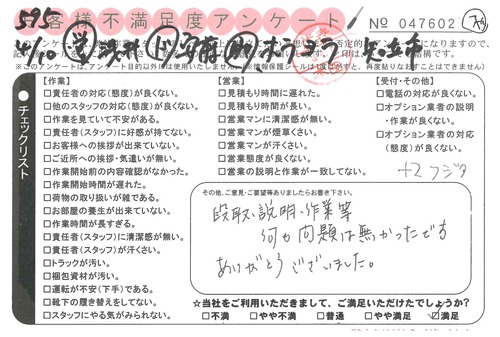 595
お客様不満足度アンケート
No 047602
4/10
チェックリスト
【作業】
□責任者の対応(態度)が良くない。
□他のスタッフの対応(態度)が良くない。
□作業を見ていて不安がある。
□責任者(スタッフ)に好感が持てない。
□お客様への挨拶が出来ていない。
□ご近所への挨拶・気遣いが無い。
□作業開始前の内容確認がなかった。
□作業開始時間が遅れた。
□荷物の取り扱いが雑である。
□お部屋の養生が出来ていない。
□作業時間が長すぎる。
□責任者(スタッフ)に清潔感が無い。
□責任者(スタッフ)が汗くさい。
□トラックが汚い。
□梱包資材が汚い。
□運転が不安(下手)である。
□靴下の履き替えをしてない。
□スタッフにやる気がみられない。
【営業】
□見積もり時間に遅れた。
□見積もり時間が長い。
□営業マンに清潔感が無い。
□営業マンが煙草くさい。
□営業マンが汗くさい。
□営業態度が良くない。
□営業の説明と作業が一致してない。
【受付・その他】
□電話の対応が良くない。
□オプション業者の説明
・作業が良くない。
□オプション業者の対応
(態度)が良くない。
その他、ご意見・ご要望等ありましたらお書き下さい。
段取、説明、作業等
何か問題は無かったです
ありがとうございました。
☆当社をご利用いただきまして、ご満足いただけたでしょうか?
□不満 □やや不満 □普通 □やや満足 ☑満足